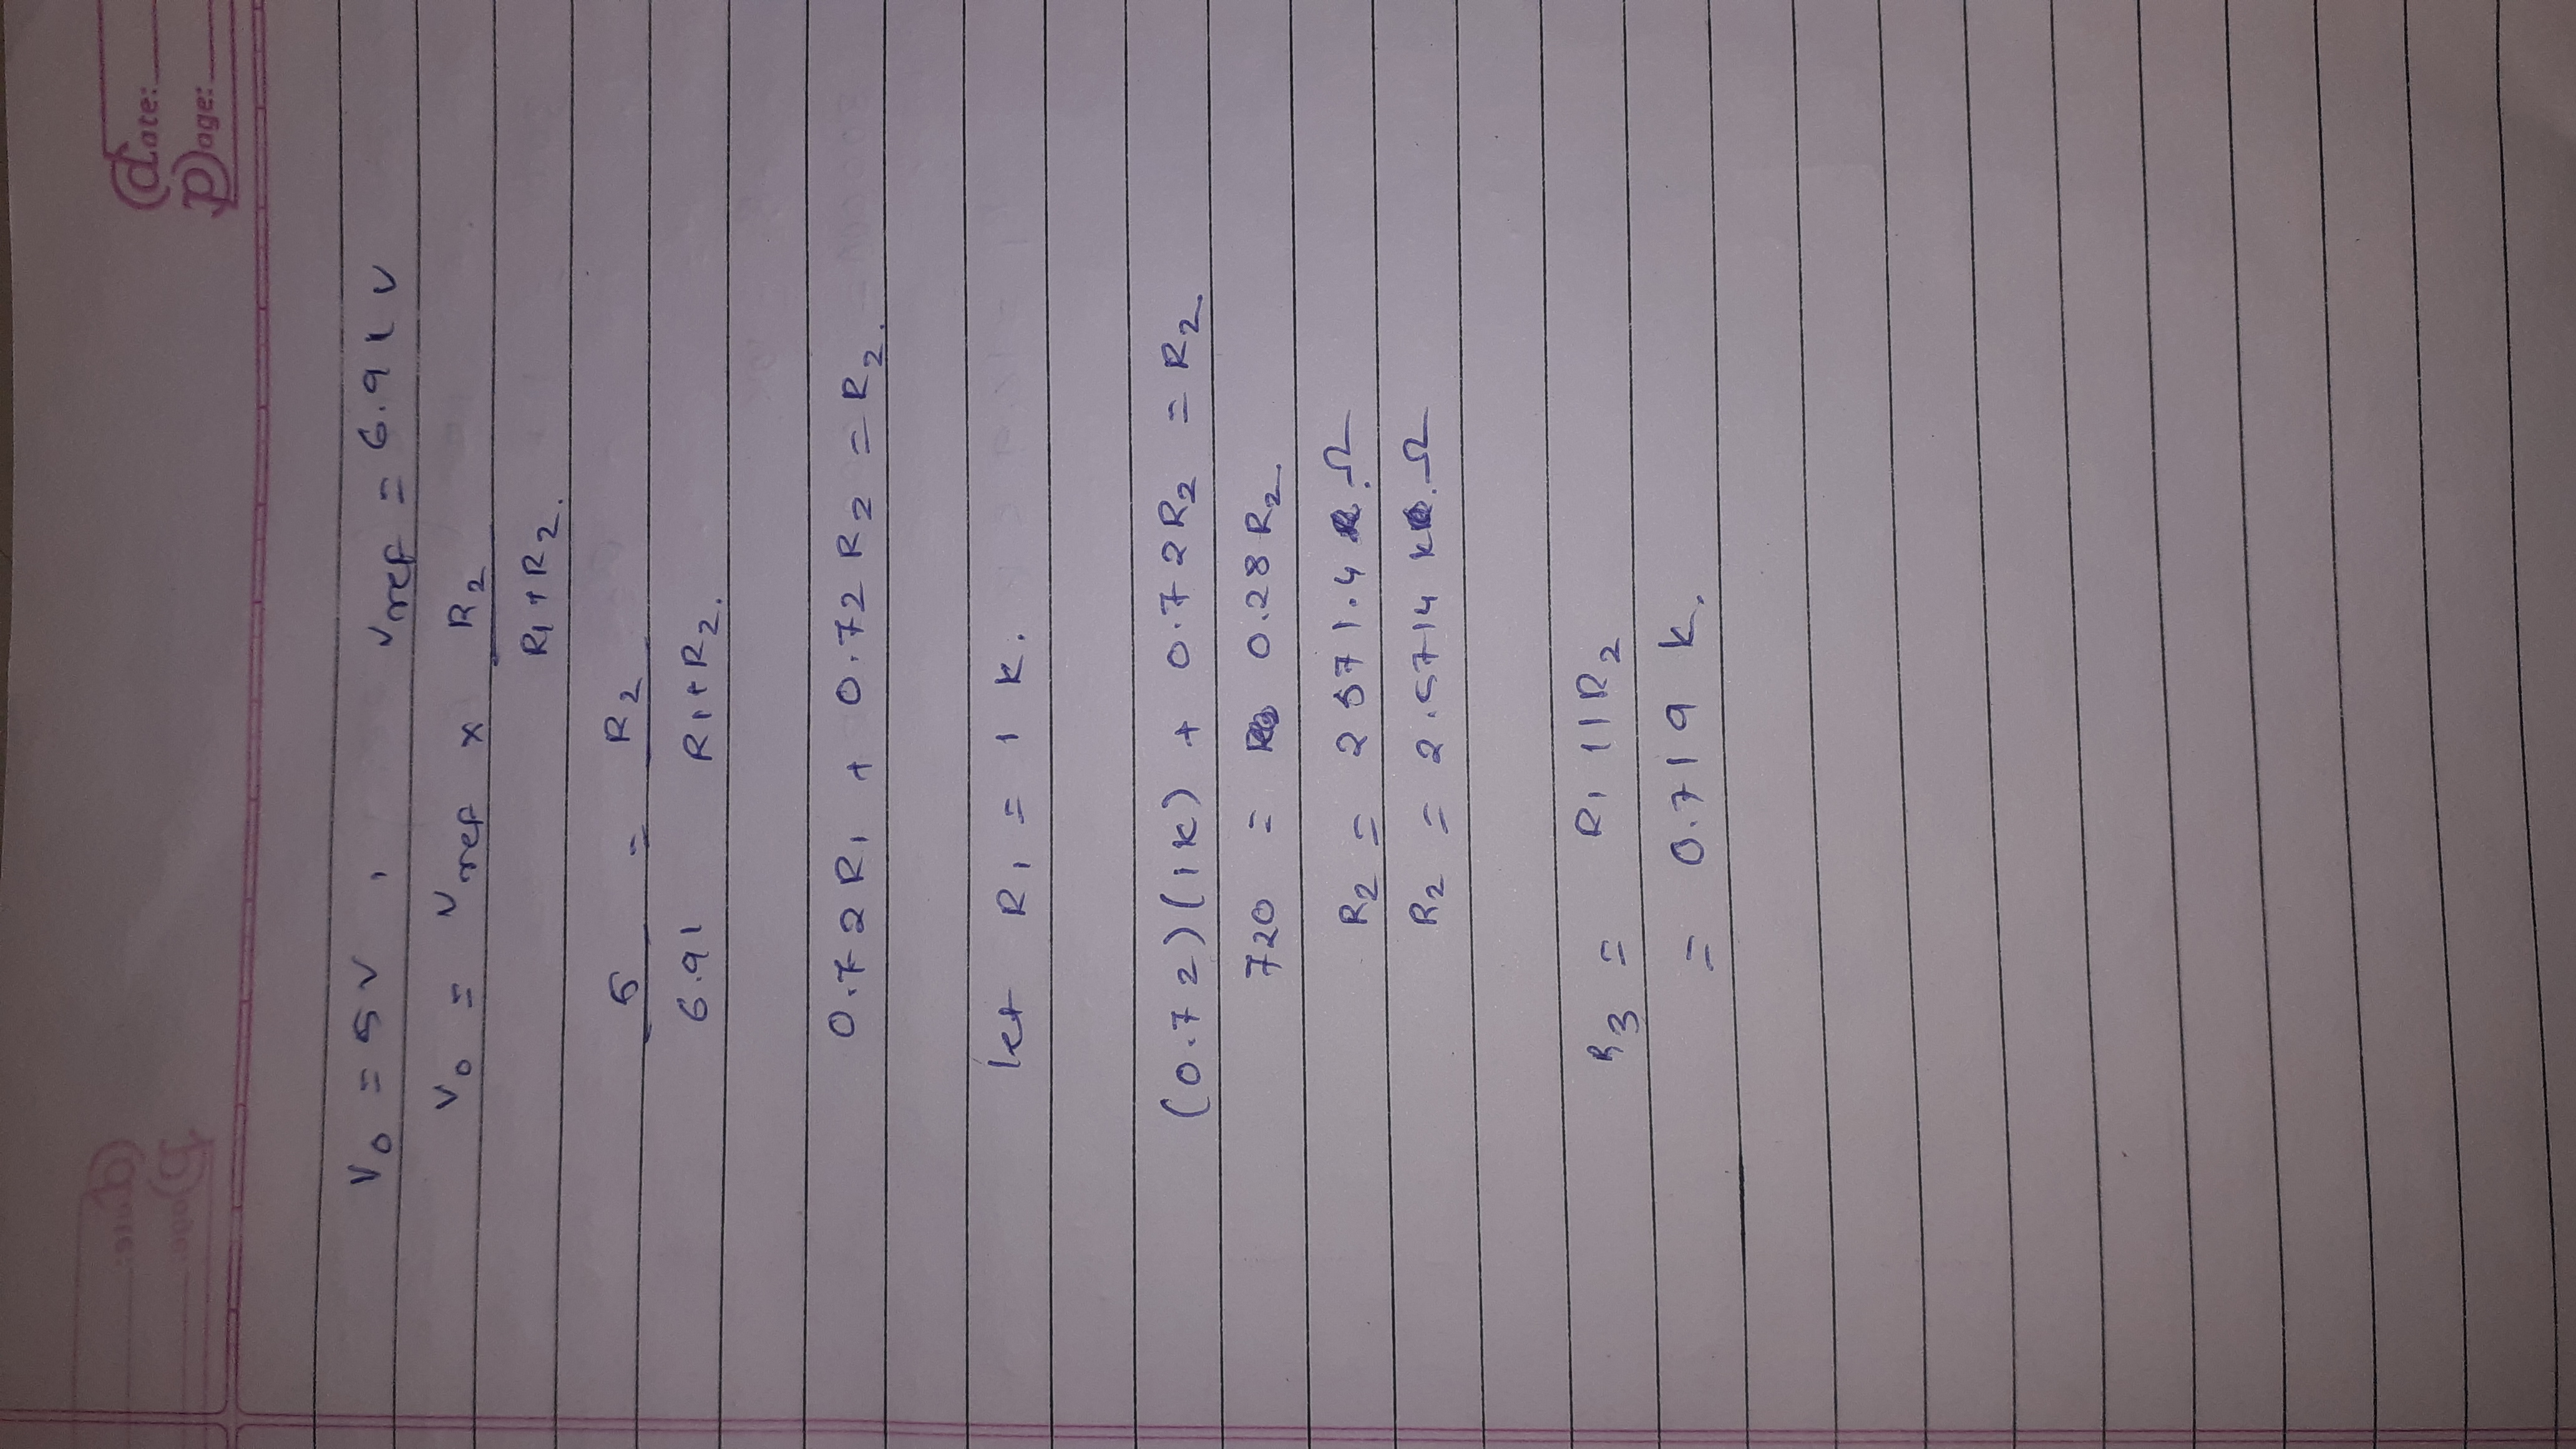 Date:
Page:
V₀ = 5V , Vref = 6.91 V
V₀ = Vref × R₂ / R₁+R₂.
5 / 6.91 = R₂ / R₁+R₂.
0.72 R₁ + 0.72 R₂ = R₂.
let R₁ = 1 k.
(0.72)(1k) + 0.72R₂ = R₂
720 = 0.28 R₂
R₂ = 2571.4 Ω
R₂ = 2.5714 k Ω
R₃ = R₁ || R₂
= 0.719 k.